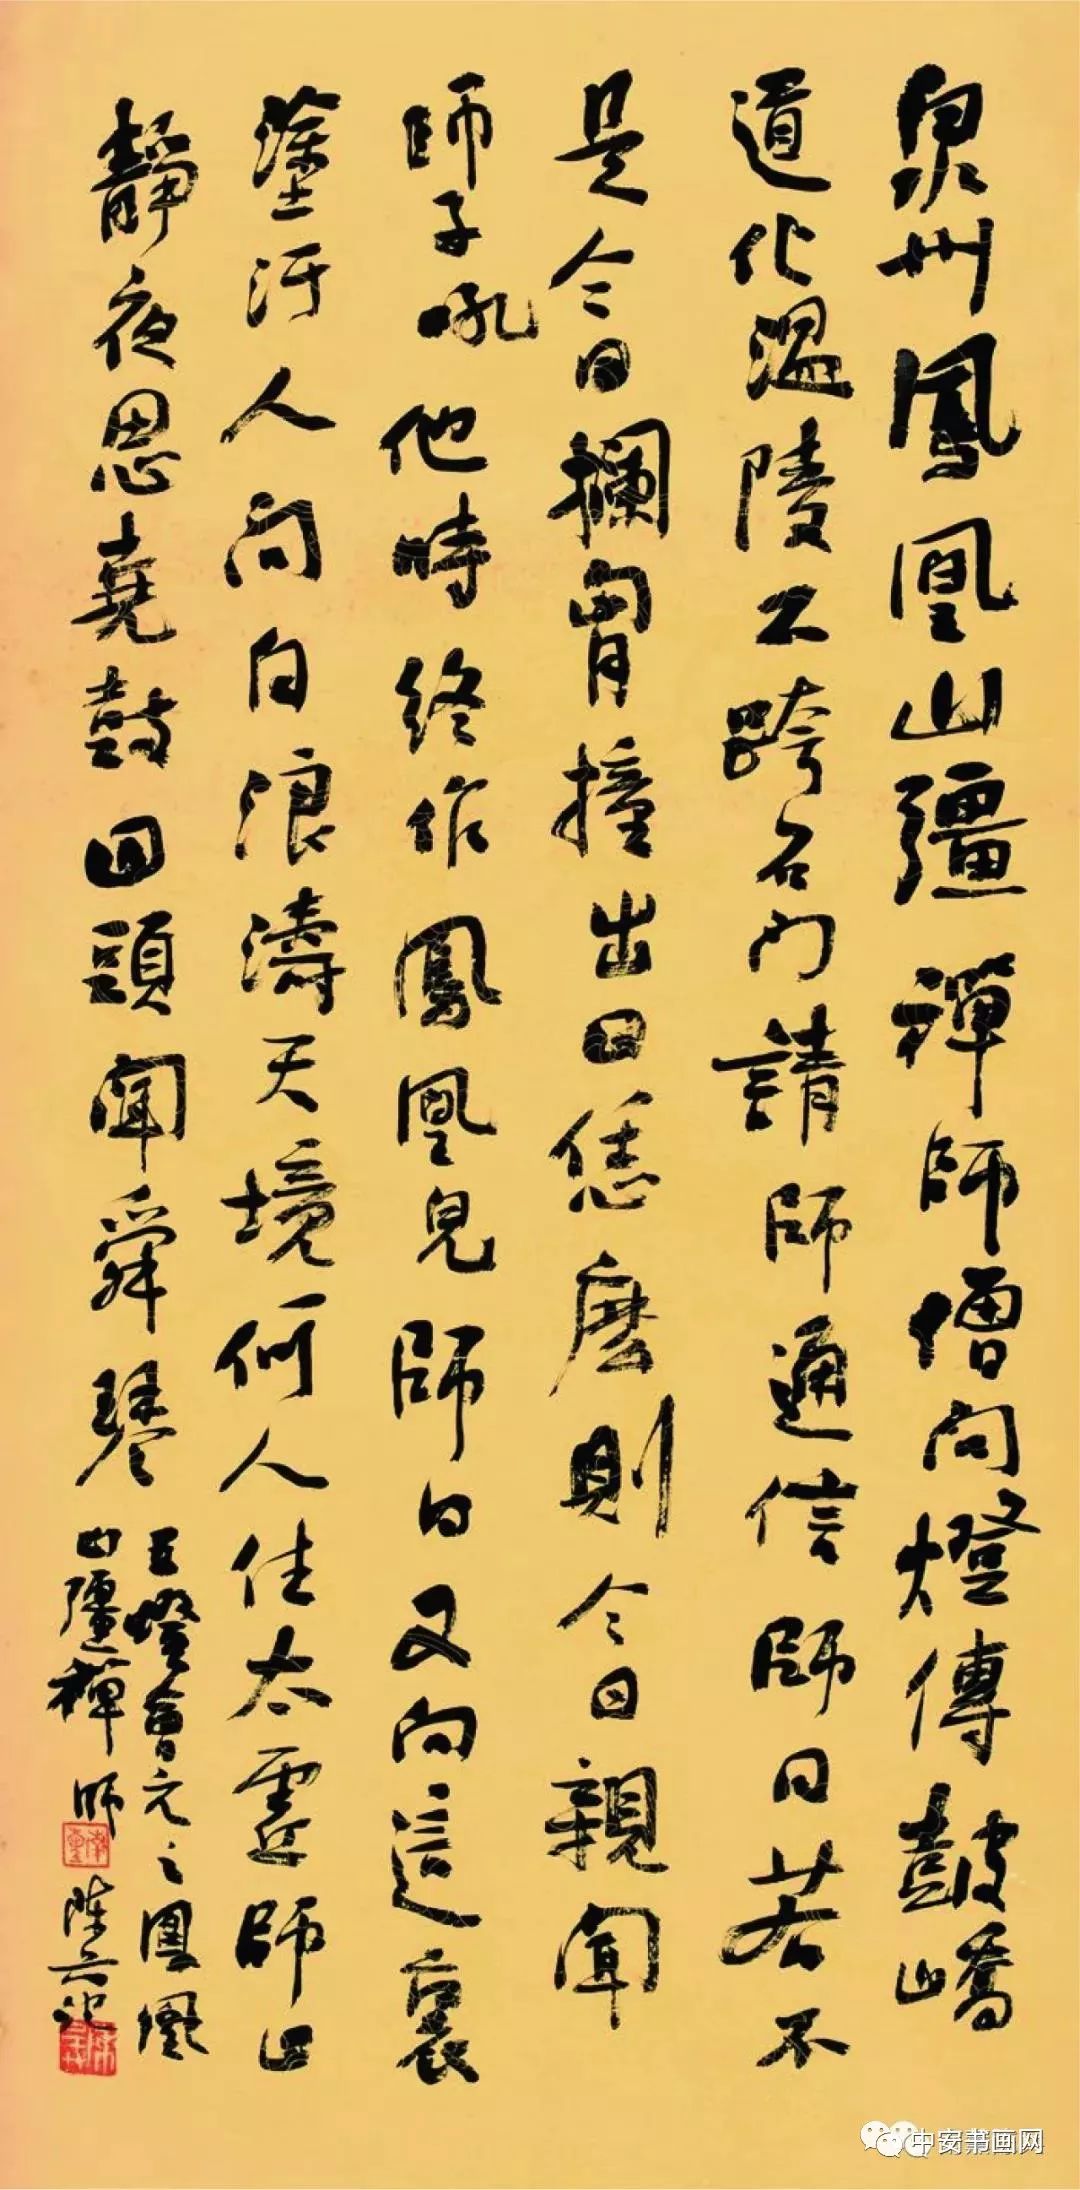 泉州鳳凰山彊禪師僧問燈傳鼓嶠
道化溫陵不跨石門請師通信師曰若不
是今日攔胷撞出曰恁麽則今日親聞
師子吼他時終作鳳凰兒師曰又向這裏
塗汙人問白浪濤天境何人住太虛師曰
靜夜思堯鼓回頭聞舜琴
五燈會元之鳳凰
山彊禪師
中安書画网